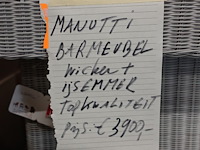 MANUTTI
BARMEUBEL
wicker +
IJSEMMER
TOPKWALITEIT
prijs: € 3900,-